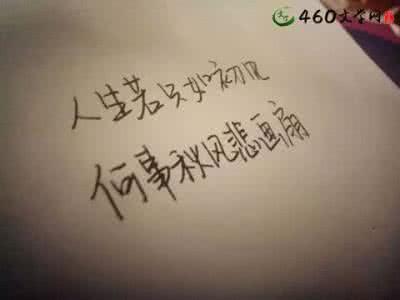 460文学网
人生若只如初见
何事秋风悲画扇